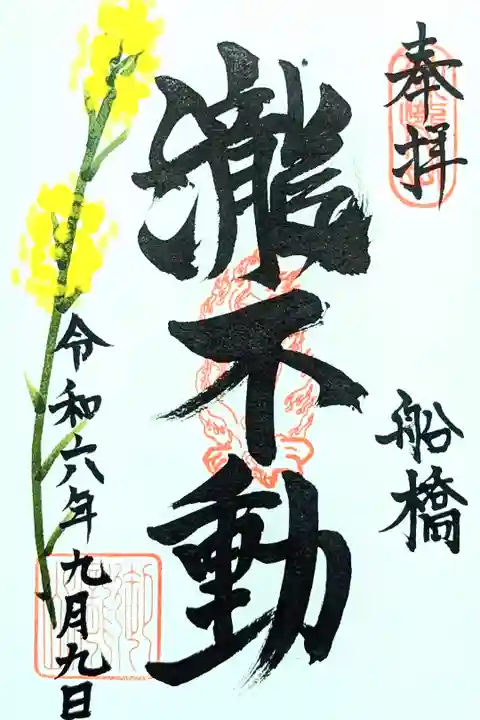 奉拝
船橋
瀧不動
令和六年九月九日